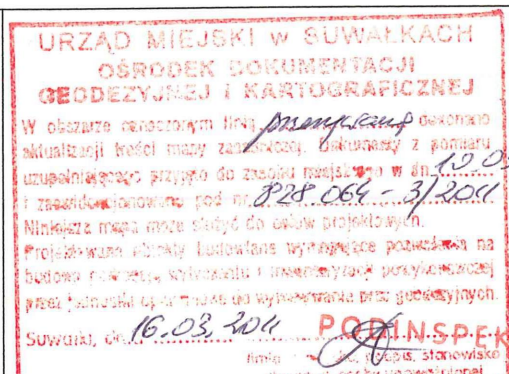 URZĄD MIEJSKI W SUWAŁKACH
OŚRODEK DOKUMENTACJI
GEODEZYJNEJ I KARTOGRAFICZNEJ
W obszarze oznaczonym linią dokonano
aktualizacji treści mapy zasadniczej. Dokumenty z pomiaru
uzupełniającego przyjęto do zasobu miejskiego w dn. 10.03
i zaewidencjonowano pod nr 828.064-3/2011
Niniejsza mapa może służyć do celów projektowych.
Projektowane obiekty budowlane wymagające pozwolenia na
budowę podlegają wytyczeniu i inwentaryzacji powykonawczej
przez jednostki uprawnione do wykonywania prac geodezyjnych.
Suwałki, dn. 16.03.2011 PODINSPEK
podpis, stanowisko
osoby upoważnionej